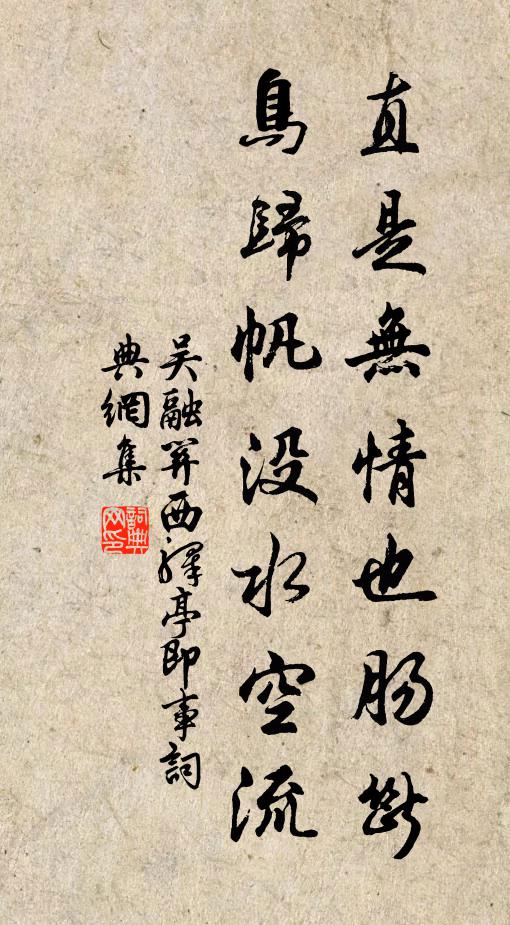 直是無情也腸斷
鳥歸帆沒水空流
吴融關西驛亭即事詞
典網集
詞典网印